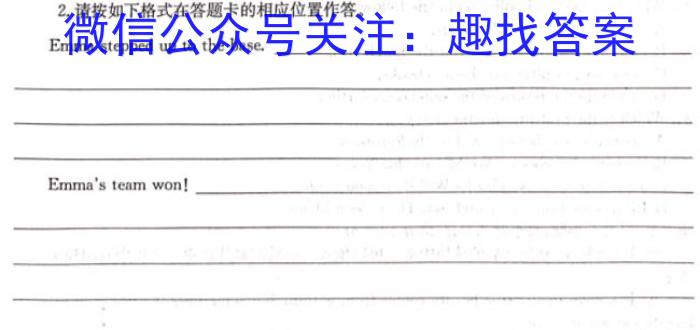 2.请按如下格式在答题卡的相应位置作答。
微信公众号关注：趣找答案
Emma stepped up to the base.
Emma's team won!